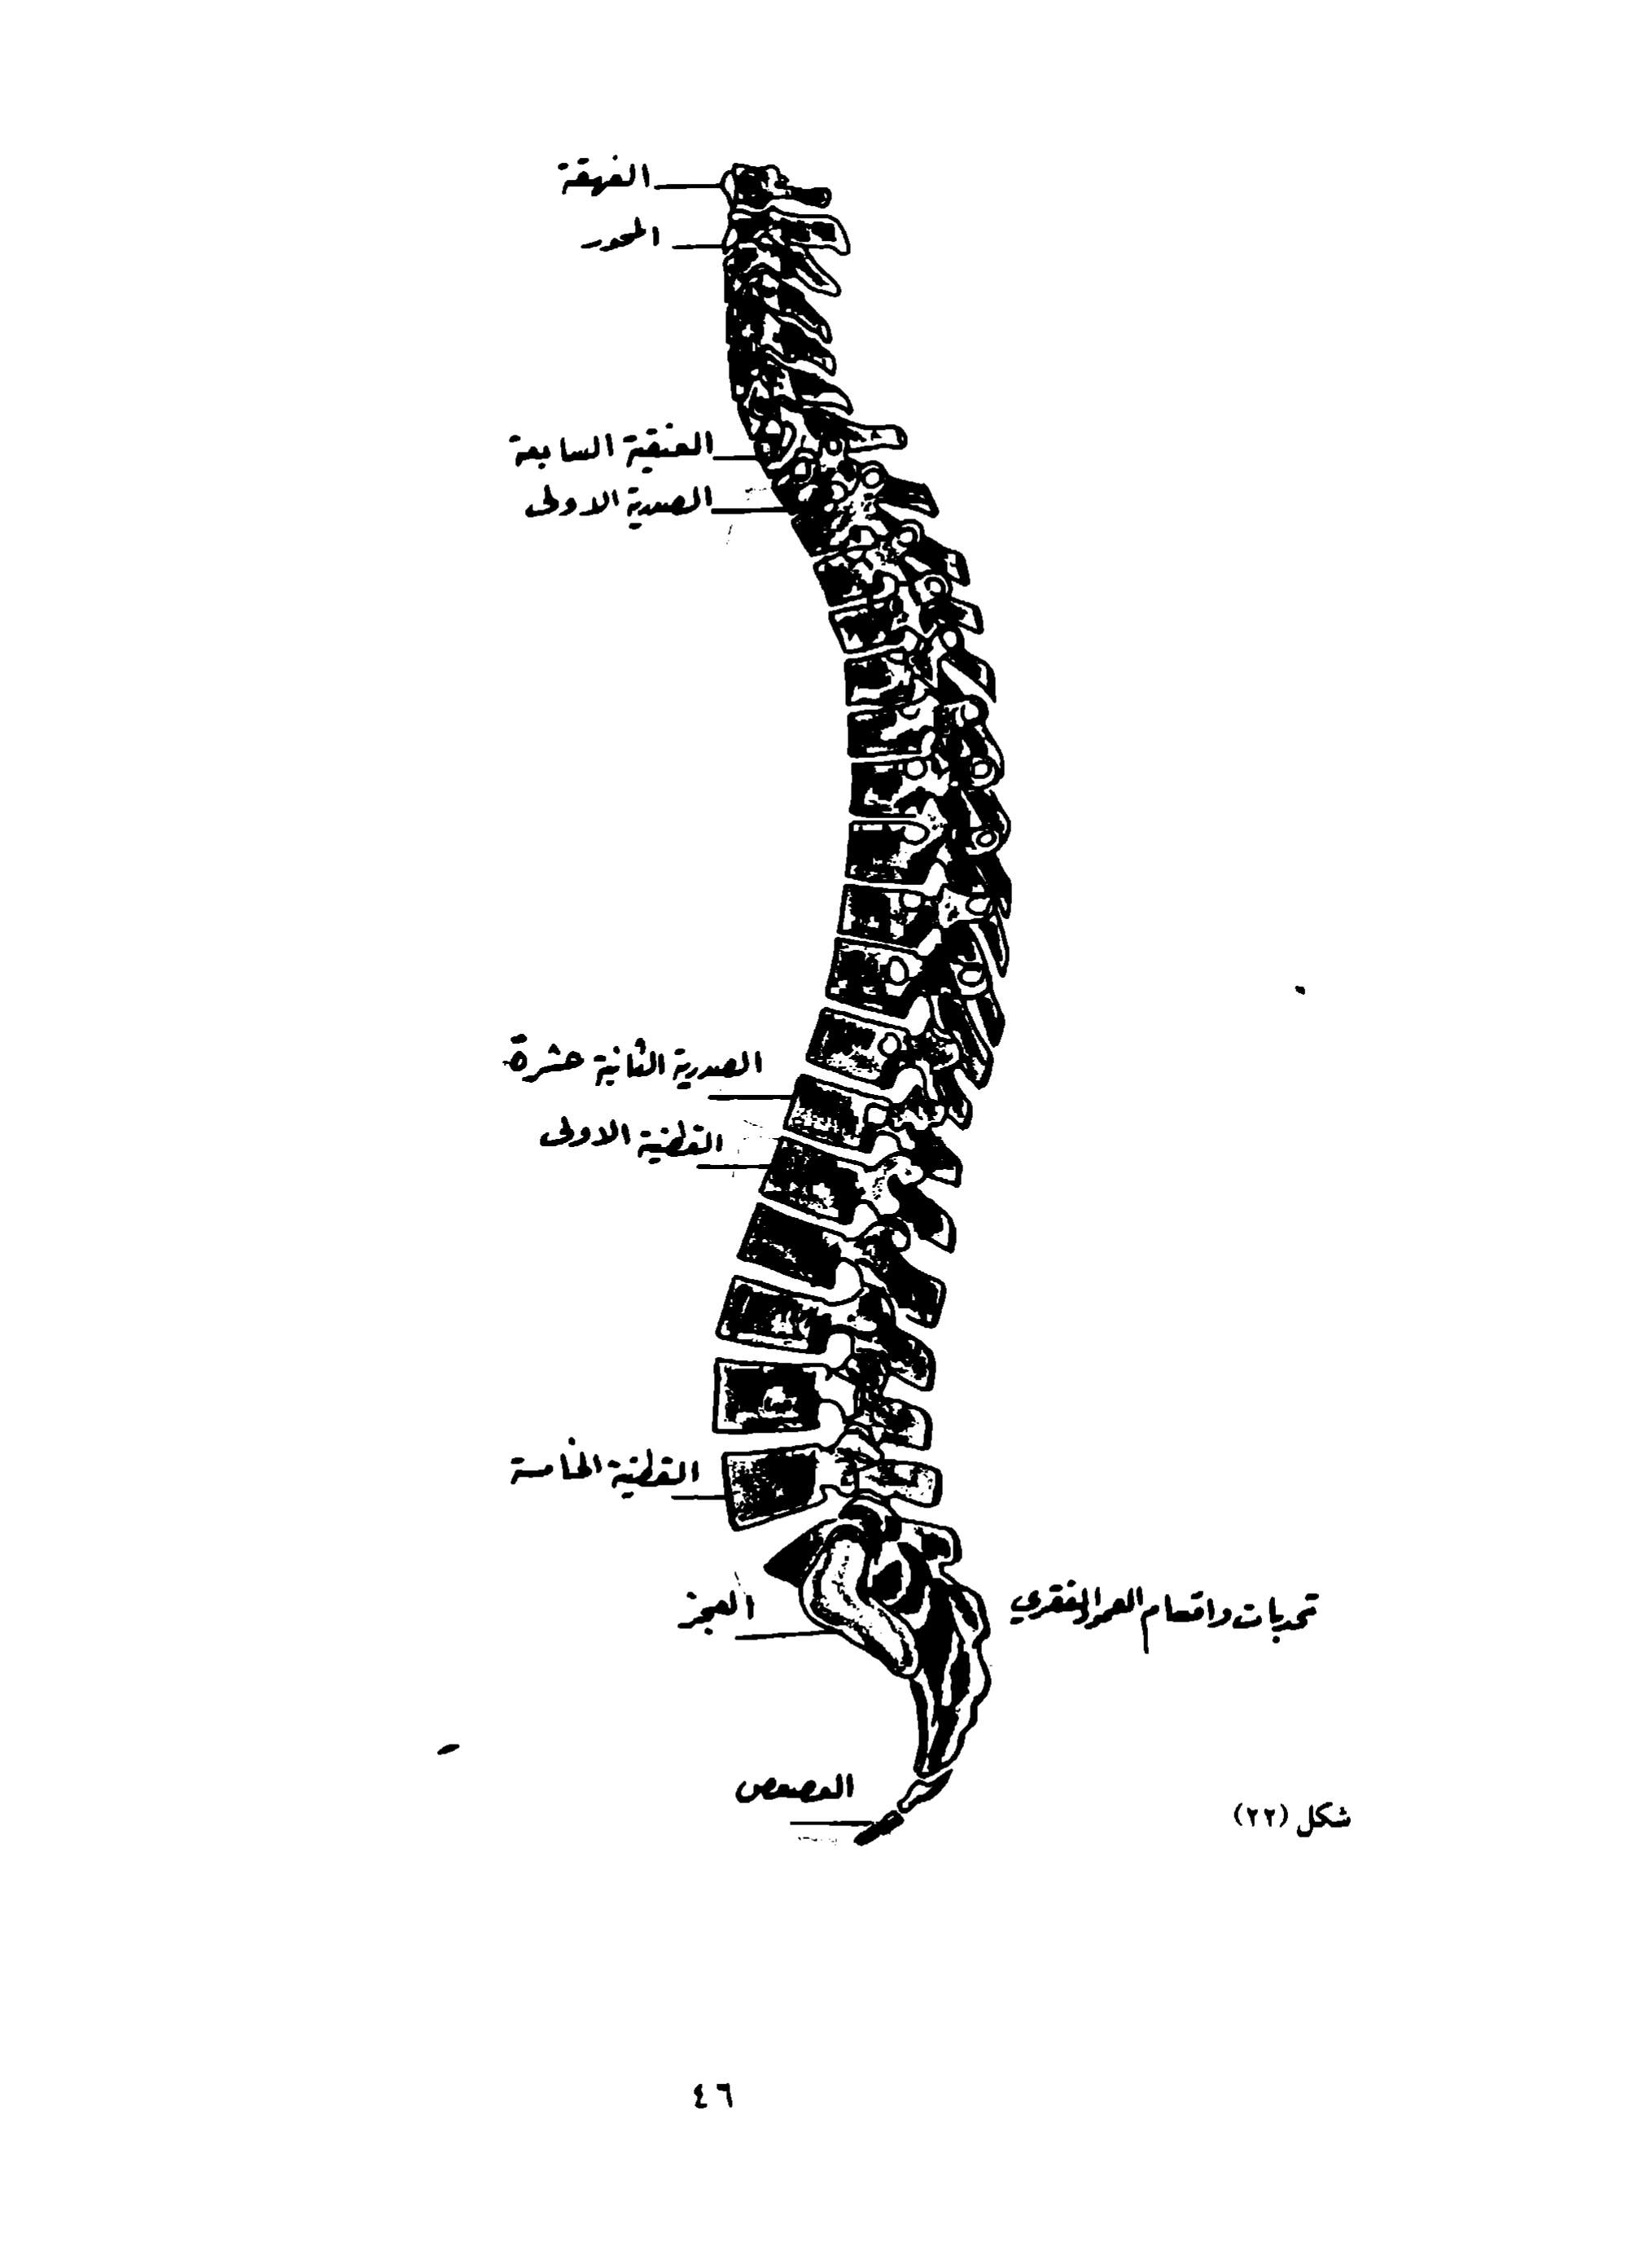 الفهقة
المحور
العنقية السابعة
الصدرية الاولى
الصدرية الثانية عشرة
القطنية الاولى
القطنية الخامسة
العجز
تحدبات واقسام العمود الفقري
العصعص
شكل (٢٢)
٤٦